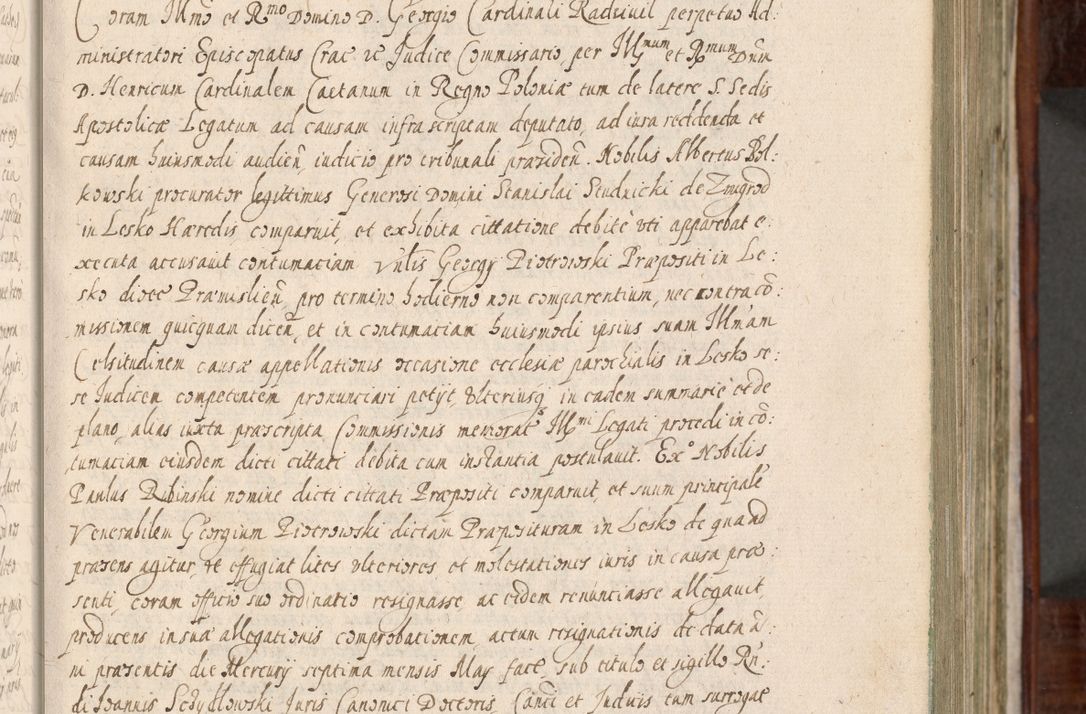 Coram Illmo et Rmo Domino D. Georgio Cardinali Radziuil perpetuo Ad:
ministratori Episcopatus Crac ve Judice Commissario, per Illmum et Rmum Dnum
D. Henricum Cardinalem Caetanum in Regno Poloniæ tum de latere S. Sedis
Apostolicæ Legatum ad causam infra scriptam deputato, ad iura reddenda et
causam huiusmodi audien, iudicio pro tribunali præsiden. Nobilis Albertus Bol:
kowski procurator legittimus Generosi Domini Stanislai Stadnicki de Zmigrod
in Lesko Hæredis, comparuit, et exhibita cittatione debitè vti apparebat e:
xecuta accusauit contumatiam Vnlis Georgy Piotrowski Præpositi in Le:
sko dioec Præmislien, pro termino hodierno non comparentium, nec contra cō:
missionem quicquam dicen, et in contumatiam huiusmodi ipsius suam Illmam
Celsitudinem causæ appellationis occasione ecclesiæ parochialis in Lesko se:
se Judicem competentem pronunciari petyt, vlteriusq in eadem summariè et de
plano, alias iuxta præscripta Commissionis memorat Illmi Legati procedi in cō:
tumaciam eiusdem dicti cittati debita cum instantia postulauit. Exo Nobilis
Paulus Rbinski nomine dicti cittati Præpositi comparuit, et suum principale
Venerabilem Georgium Piotrowski dictam Præposituram in Lesko de qua nd
præsens agitur, vt effugiat lites vlteriores et molestationes iuris in causa præ:
senti, coram officio suo ordinatio resignasse ac eidem renunciasse allegauit,
producens in suæ allegationis comprobationem, actum resignationis de data ā:
ni præsentis die Mercury septima mensis May fact, sub titulo et sigillo Rn:
di Joannis Scydlowski Juris Canonici Doctoris, Canci et Juduis tum surrogat